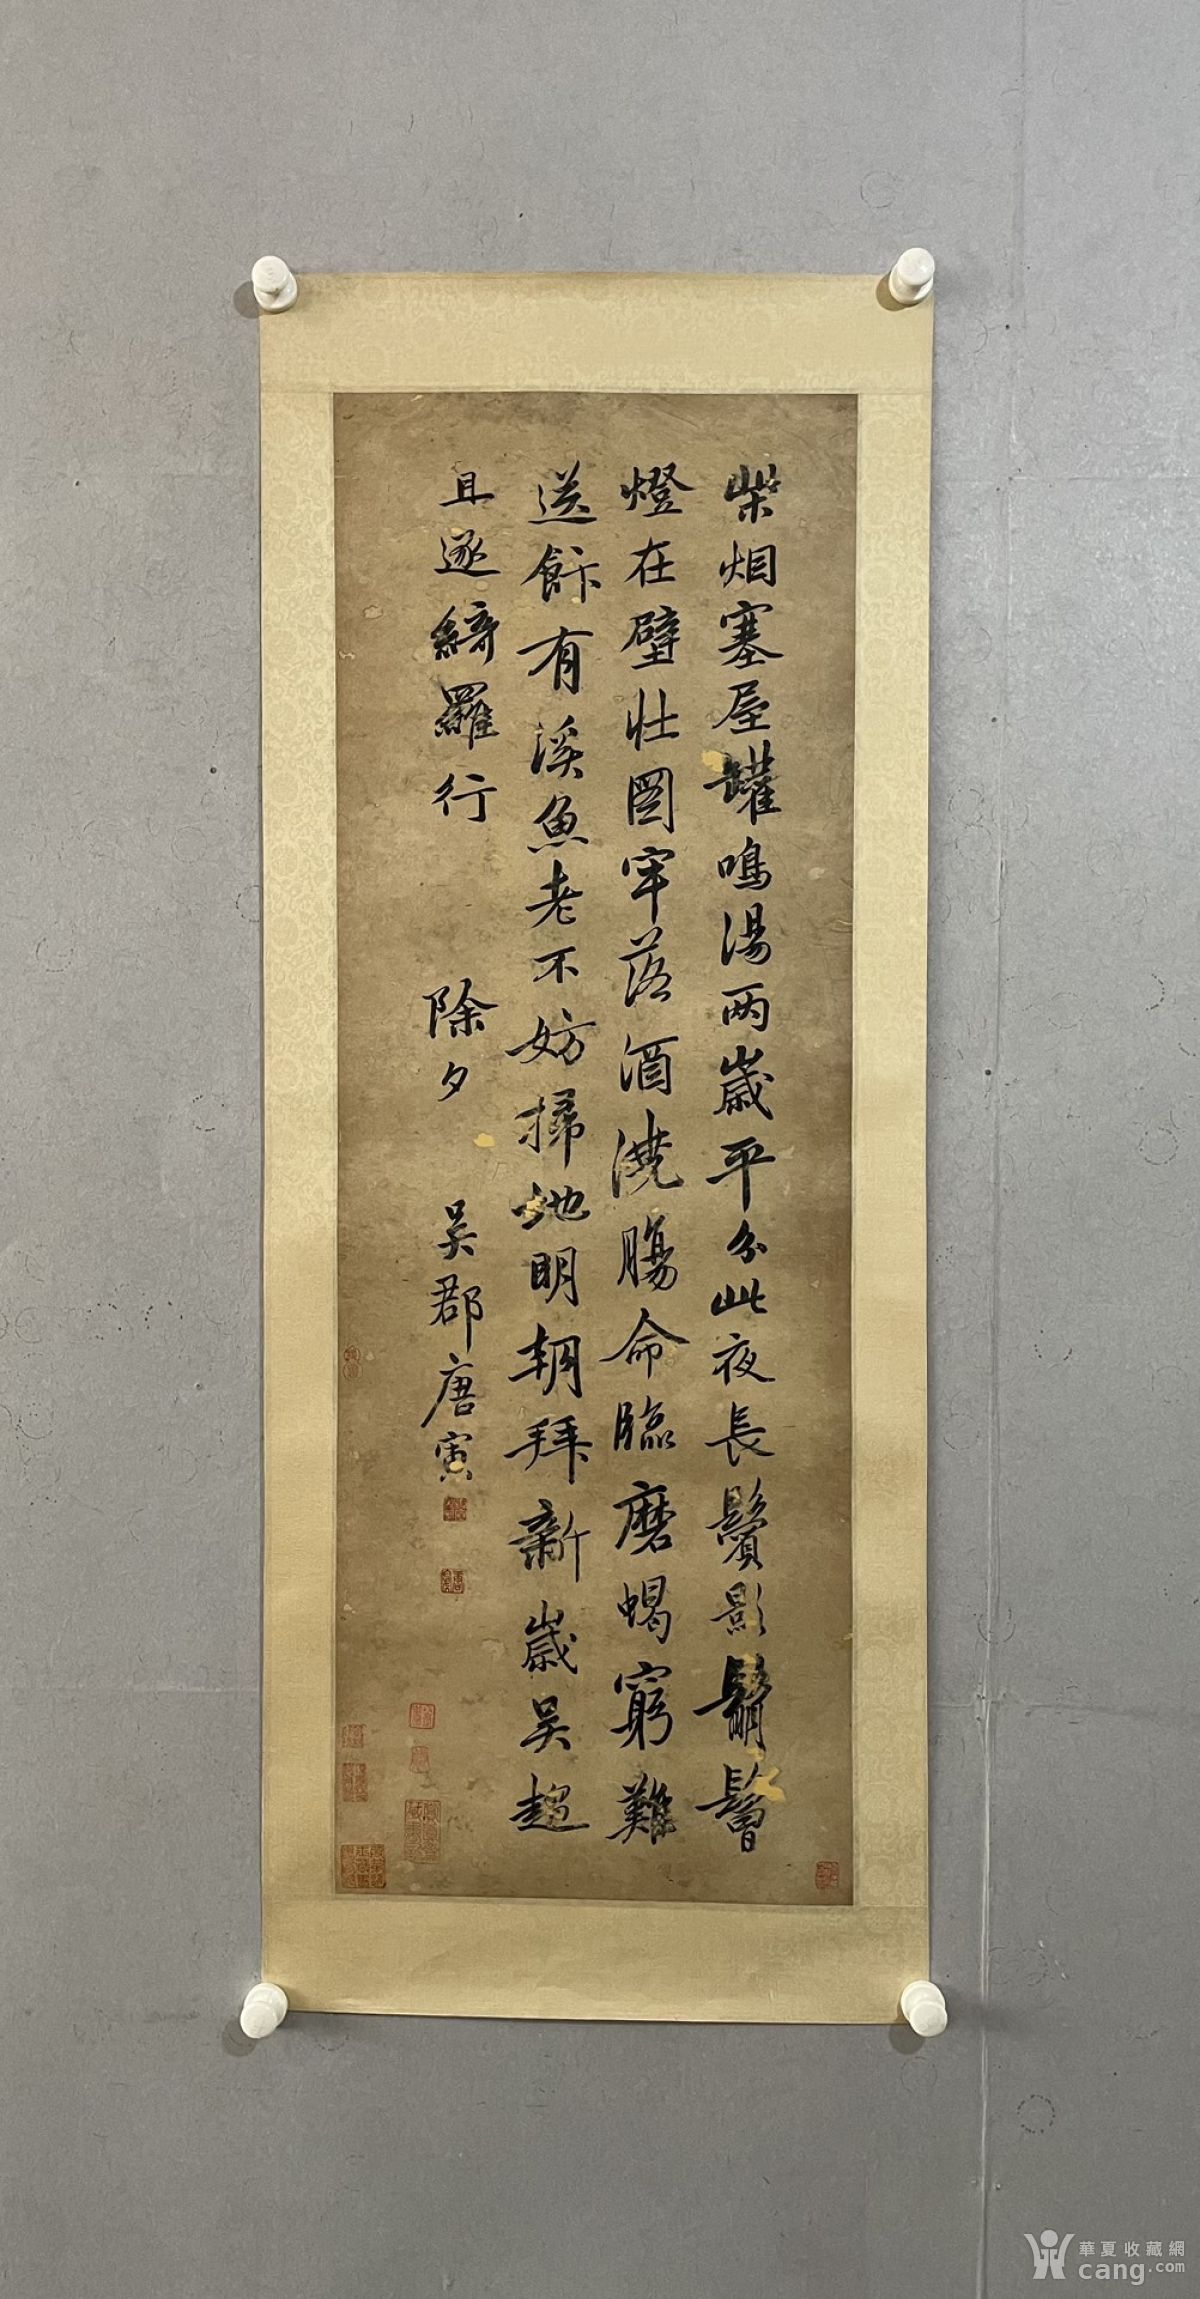 柴烟塞屋罐鳴湯两歲平分此夜長鬢影鬅鬙
燈在壁壮圖牢落酒澆腸命臨磨蝎窮難
送餘有溪魚老不妨掃地明朝拜新歲吴趨
且逐綺羅行
除夕
吴郡唐寅
華夏收藏網
cang.com